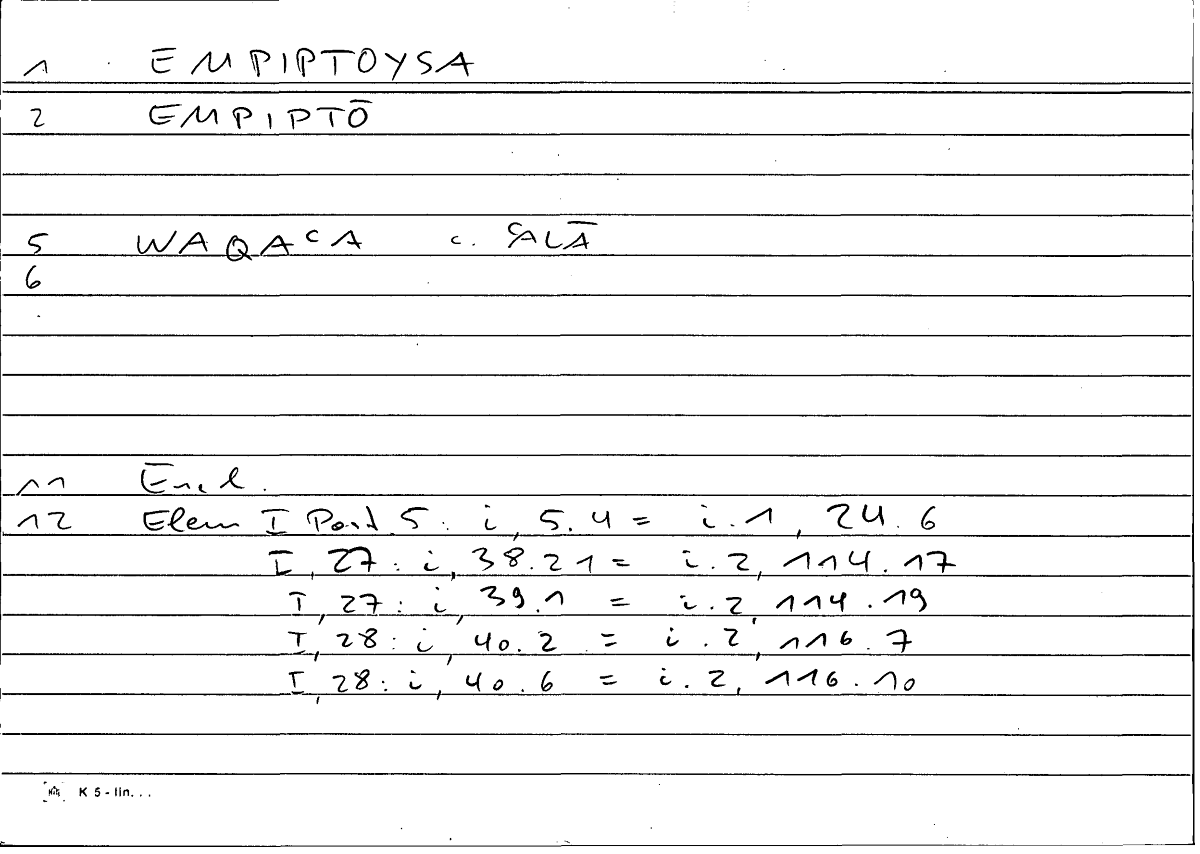 1 EMPIPTOYSA
2 EMPIPTŌ
5 WAQAᶜA c. ᶜALĀ
6
11 Eucl.
12 Elem I Post. 5: i, 5.4 = i.1, 24.6
I, 27: i, 38.21 = i.2, 114.17
I, 27: i, 39.1 = i.2, 114.19
I, 28: i, 40.2 = i.2, 116.7
I, 28: i, 40.6 = i.2, 116.10
K 5 - lin. . .